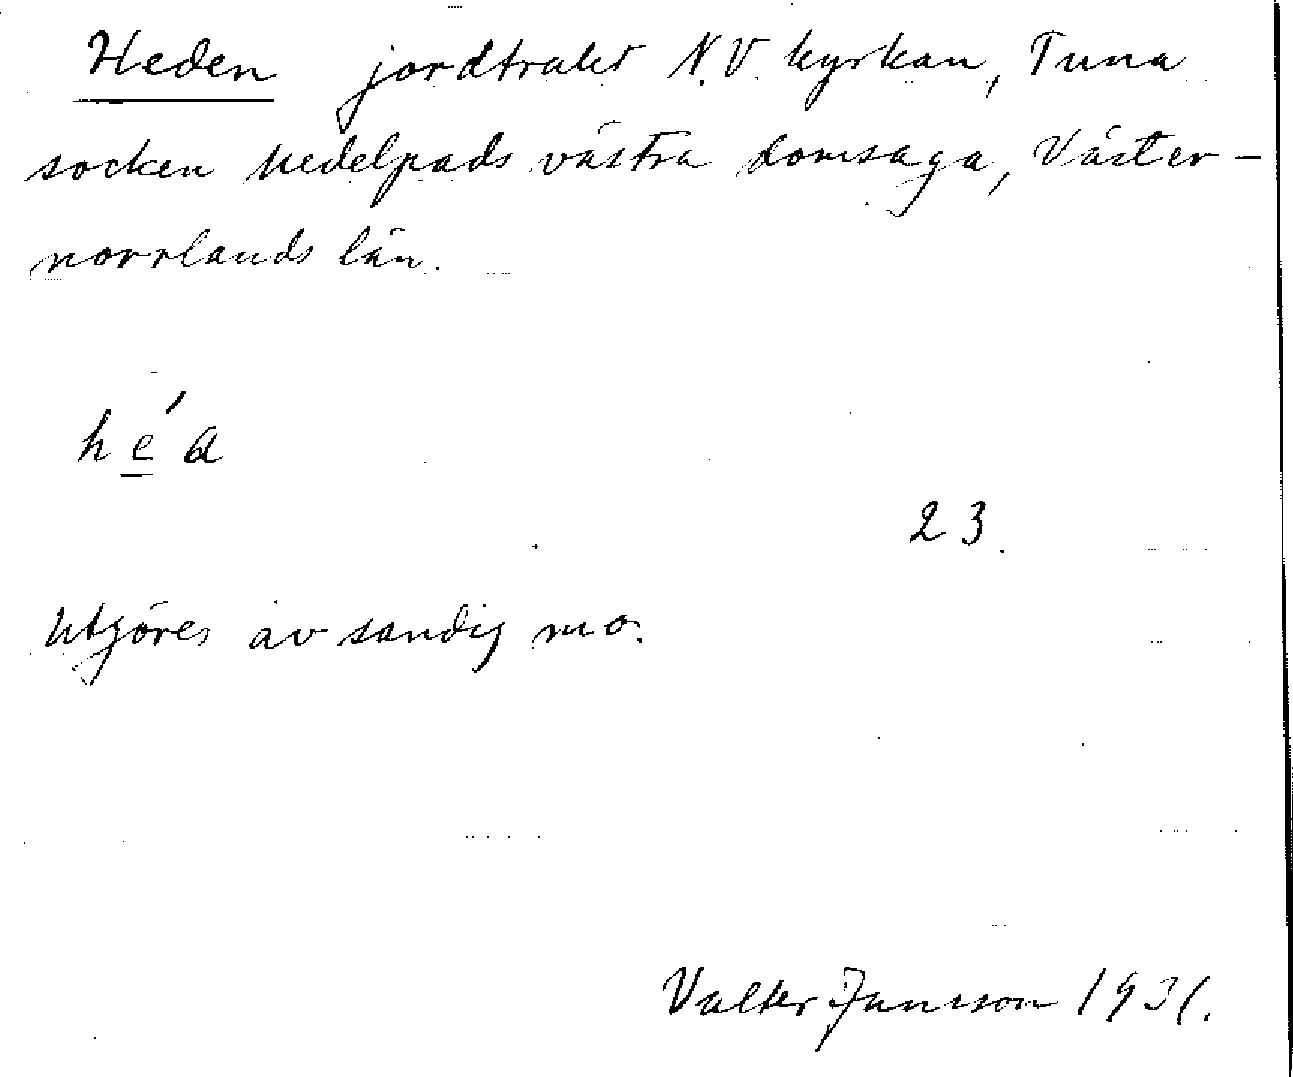 Heden jordtrakt N.V. kyrkan, Tuna
socken Medelpads västra domsaga, Väster-
norrlands län.
he̲´a
23.
Utgöres av sandig mo.
Valter Jansson 1931.